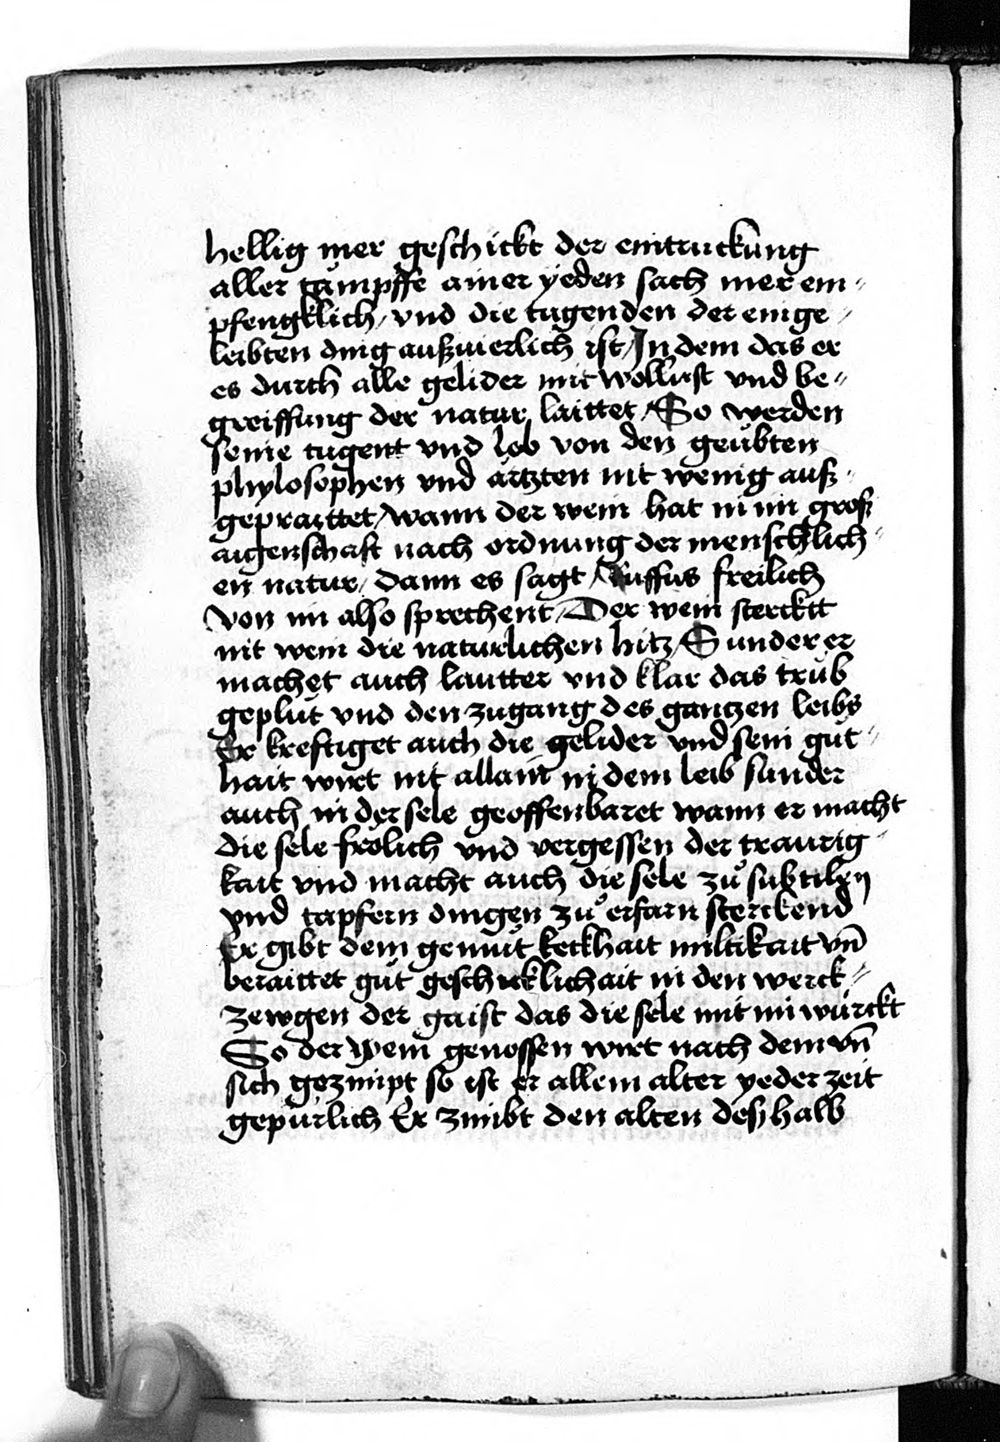 hellig mer geschickt der eintruckung
aller tämpffe ainer yeden sach mer em-
pfengklich / vnd die tugenden der einge-
leibten ding außwerlich ist / In dem das er
es durch alle gelider mit wollust vnd be-
greiffung der natur laittet / So werden
seine tugent vnd lob von den geübten
phylosophen vnd ärtzten nit wenig auß-
gepraittet / wann der wein hat in im groß
aigenschafft nach ordnung der menschlich-
en natur / dann es sagt / Ruffus freilich
von im also sprechent / Der wein sterckt
nit wenn die naturlichen hitz / Sunder er
machet auch lautter vnd klar das trüb
geplüt vnd den zugang des gantzen leibs
Er kreftiget auch die gelider vnd sein güt-
hait wirt nit allain in dem leib sunder
auch in der sele geoffenbaret wann er macht
die sele frölich vnd vergessen der traurig-
kait vnd macht auch die sele zů subtilen
vnd tapfern dingen zů erfarn sterckend
Er gibt dem gemüt keckhait miltikait vn̄
beraittet güt geschicklichait in den werck-
zewgen der gaist das die sele mit im würckt
So der wein genossen wirt nach dem vn̄
sich gezimpt so ist er allem alter yeder zeit
gepürlich Er zimbt den alten deßhalb